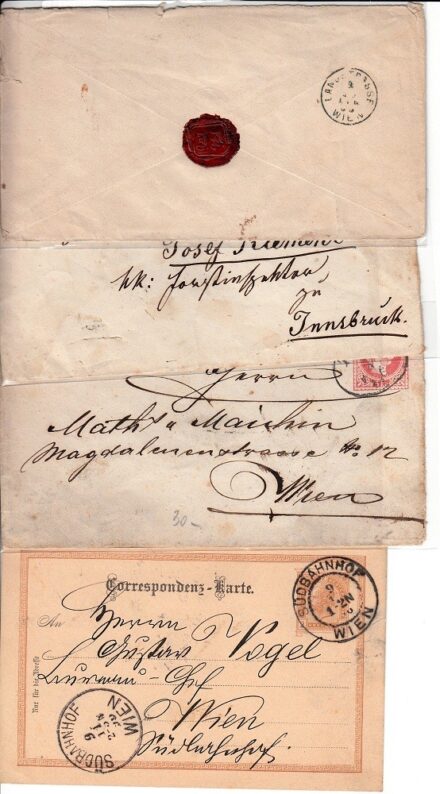 LANDSTRASSE
WIEN
Josef
kk: Forstinspektor,
zu
Innsbruck.
Herrn
Math: v
Magdalenenstrasse No 12
Wien
30-
Correspondenz-Karte.
SÜDBAHNHOF
9
1-2N
WIEN
An
Herrn
Gustav Vogel
Bureau-Chef
Wien
Südbahnhof.
Nur für die Adresse
SÜDBAHNHOF
WIEN